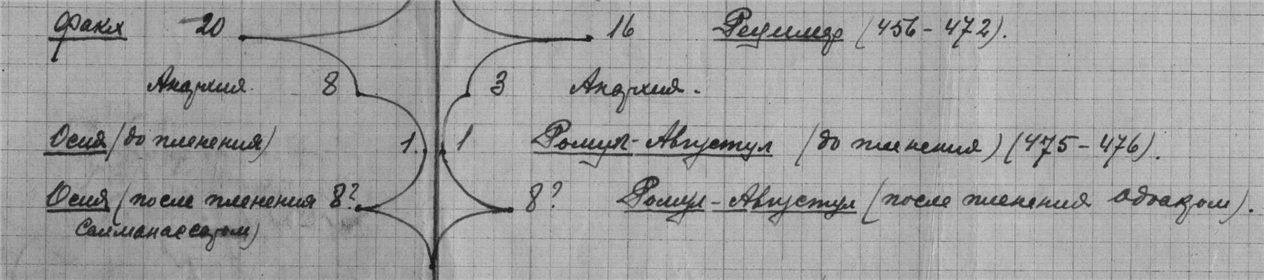 Факл 20 16 Рецимер (456-472).
Анархия. 8 3 Анархия.
Осия (до пленения) 1. 1 Ромул-Августул (до пленения) (475-476).
Осия (после пленения 8? 8? Ромул-Августул (после пленения Одоакром).
Салманассаром)